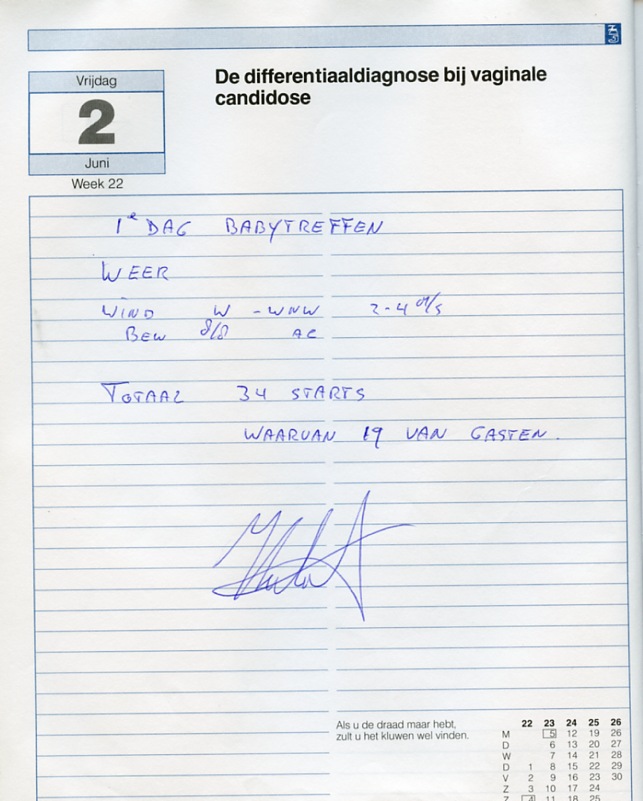 De differentiaaldiagnose bij vaginale
candidose
Vrijdag
2
Juni
Week 22
1e DAG BABYTREFFEN
WEER
WIND W - WNW 2-4 m/s
BEW 8/8 AC
TOTAAL 34 STARTS
WAARVAN 19 VAN GASTEN.
Als u de draad maar hebt,
zult u het kluwen wel vinden.
22 23 24 25 26
M 5 12 19 26
D 6 13 20 27
W 7 14 21 28
D 1 8 15 22 29
V 2 9 16 23 30
Z 3 10 17 24
Z 4 11 18 25